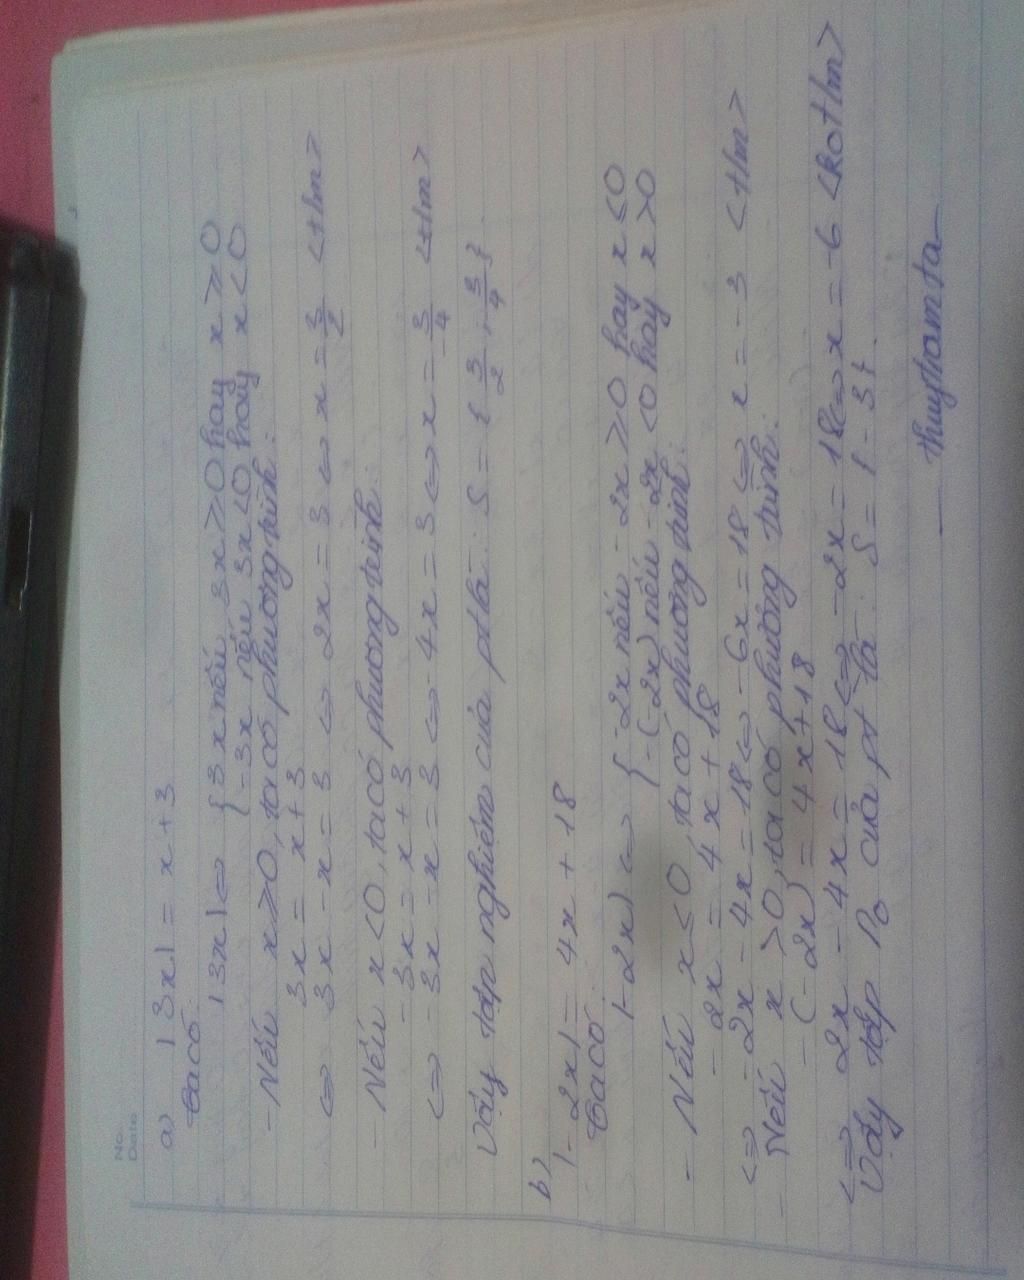 No.
Date
a) |3x| = x + 3
ta có:
|3x| <=> { 3x nếu 3x ≥ 0 hay x ≥ 0
{ -3x nếu 3x < 0 hay x < 0
- Nếu x ≥ 0, ta có phương trình:
3x = x + 3
<=> 3x - x = 3 <=> 2x = 3 <=> x = 3/2 <t/m>
- Nếu x < 0, ta có phương trình:
- 3x = x + 3
<=> - 3x - x = 3 <=> - 4x = 3 <=> x = 3/-4 <t/m>
Vậy tập nghiệm của pt là: S = { 3/2 ; -3/4 }.
b)
|- 2x| = 4x + 18
ta có:
|-2x| <=> { -2x nếu - 2x ≥ 0 hay x ≤ 0
{ -(-2x) nếu -2x < 0 hay x > 0
- Nếu x ≤ 0, ta có phương trình:
- 2x = 4x + 18
<=> - 2x - 4x = 18 <=> - 6x = 18 <=> x = - 3 <t/m>
- Nếu x > 0, ta có phương trình:
- (- 2x) = 4x + 18
<=> 2x - 4x = 18 <=> - 2x = 18 <=> x = - 6 <ko t/m>
Vậy tập No của pt là: S = { - 3 }.
— thuyhamta —